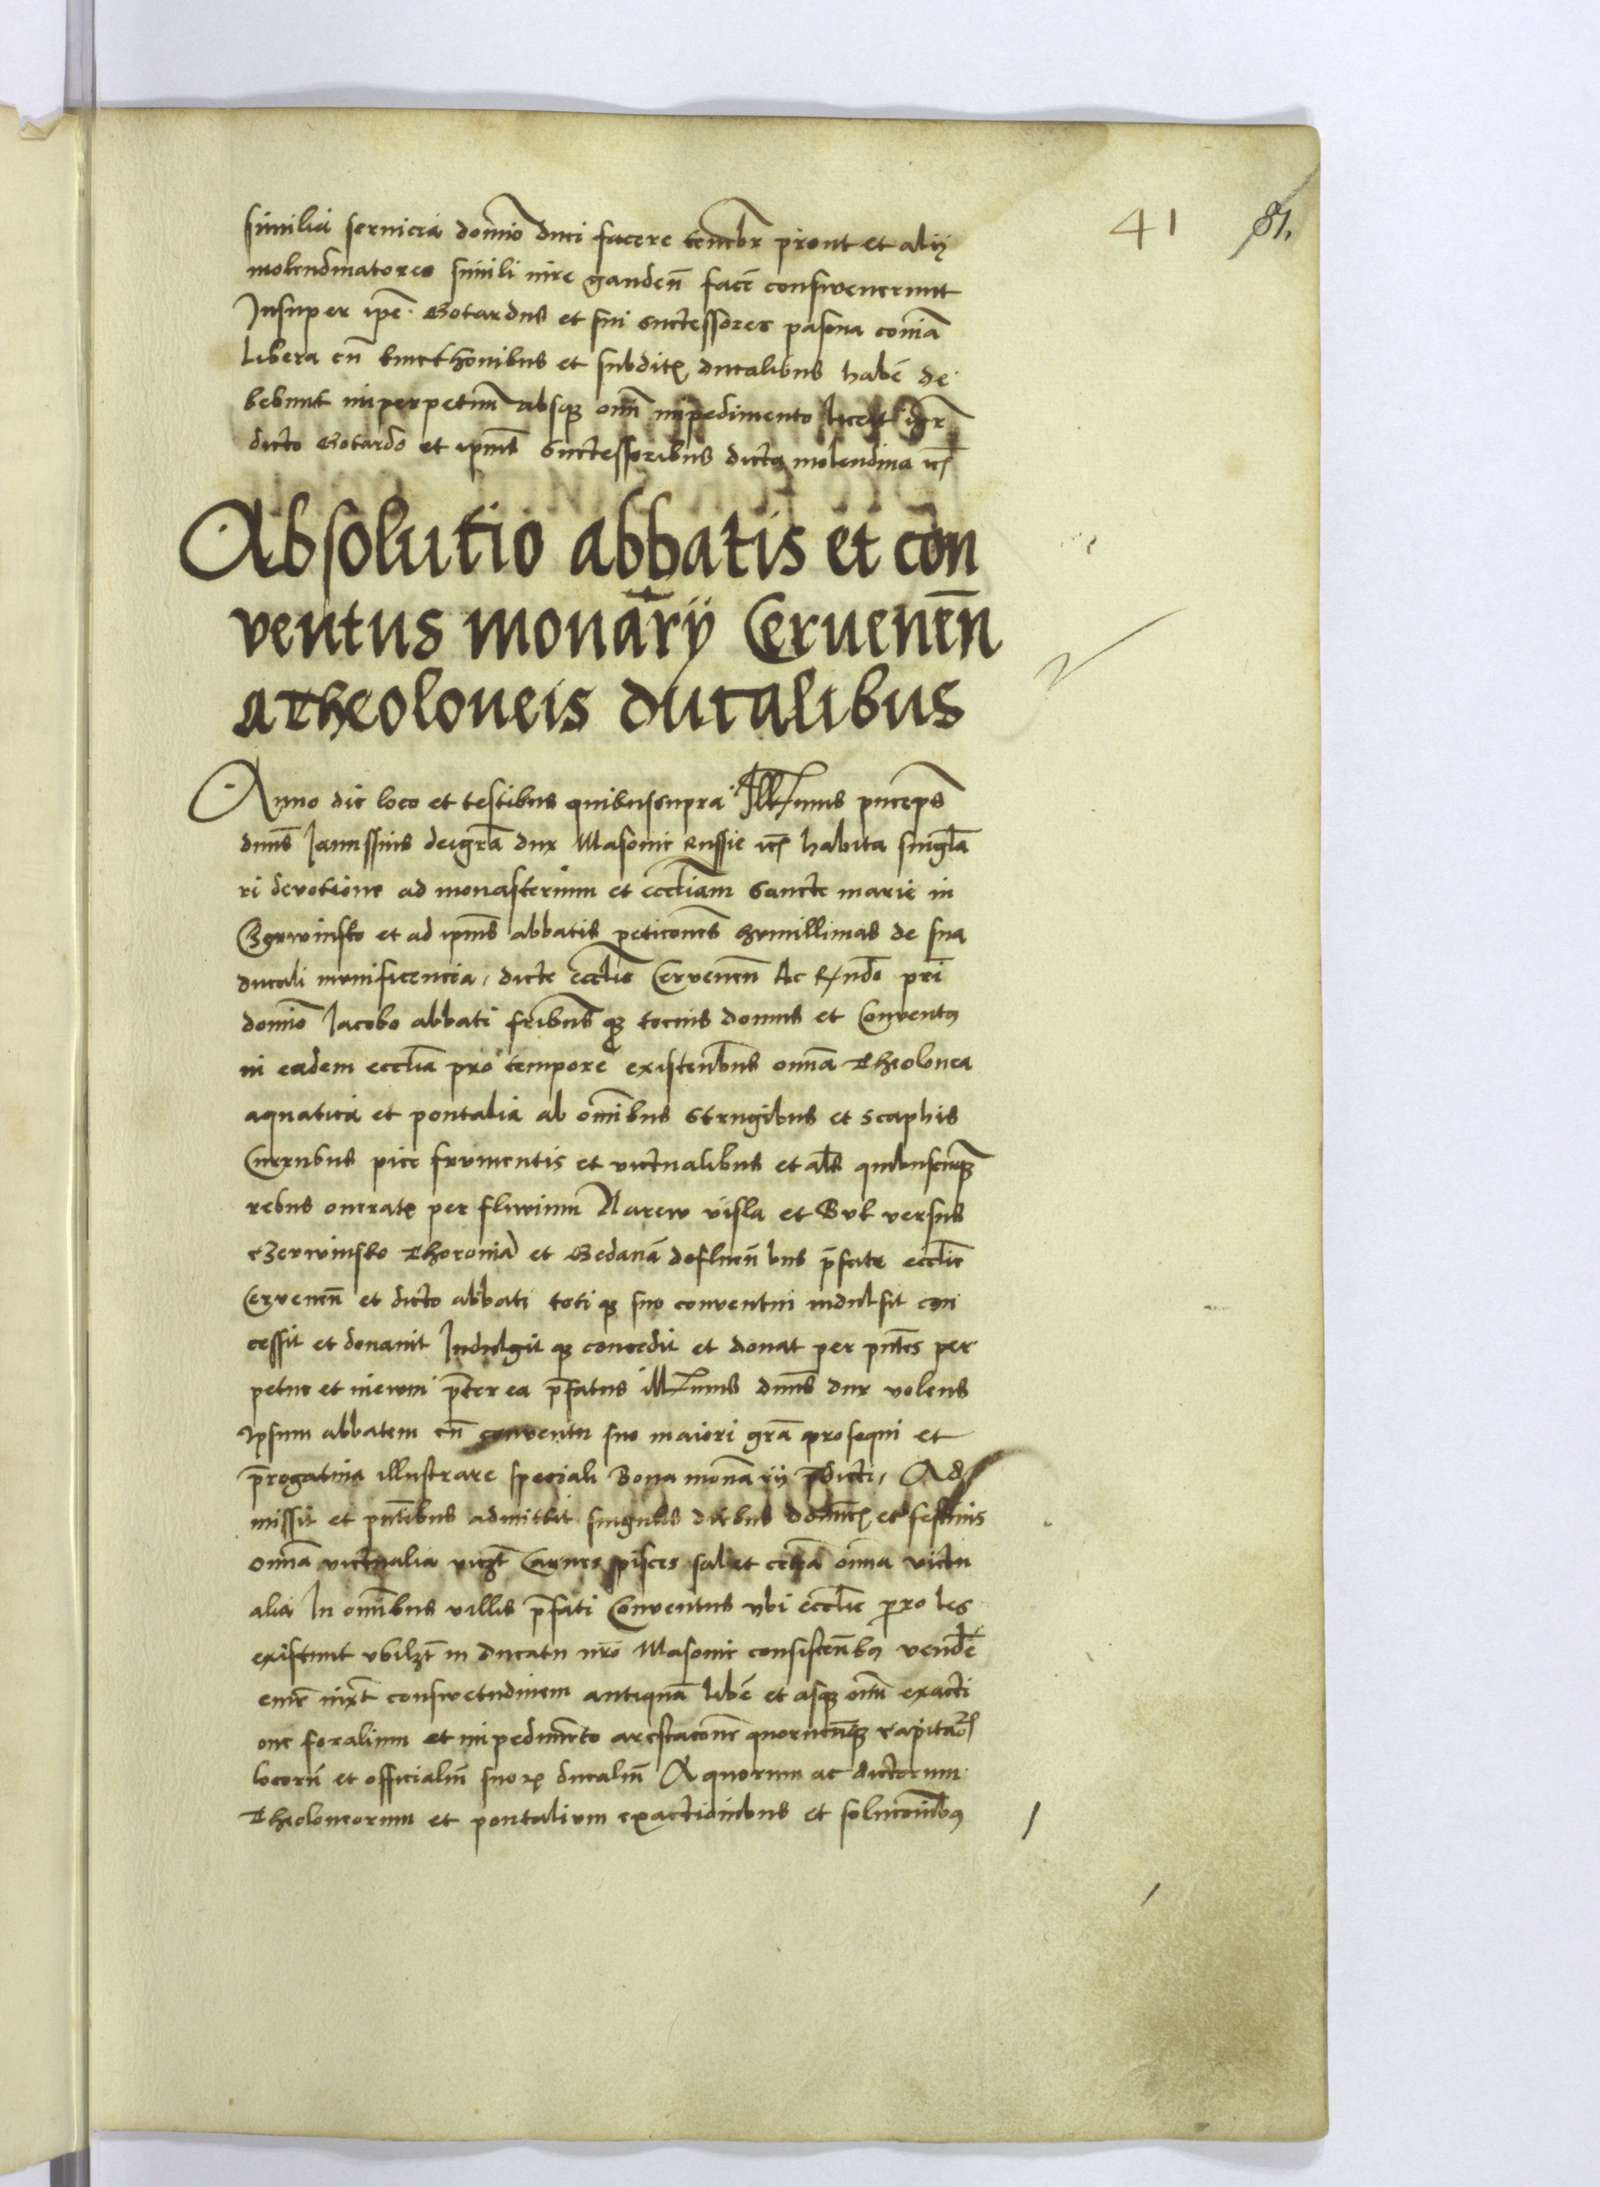 41 81.
similia seruicia domīo duci facere tenebr̄ prout et alÿ
molendinatores simili iure gauden̄ facē consweuerunt
Insuper ip̄e Gotardus et sui Suctessores pascua com̄ia
libera cū kmethonibus et subditꝭ ducalibus habē de
bebunt inperpetuum absqꝫ om̄i inpedimento licebit
dicto Gotardo et ip̄ius Suctessoribus dicta molendina ꝛcꝭ
Absolutio abbatis et con
ventus monar̄ÿ Cervenen̄
a Theoloneis ducalibus
Anno die loco et testibus quibus supra Illr̄imus pnceps̄
dnūs Janussius dei gr̄a dux Masouie Russie ꝛcꝭ habita singl̄a
ri devotione ad monasterium et eccl̄iam Sancte marie in
Czerwinsko et ad ip̄ius abbatis peticones̄ hvmillimas de sua
ducali mvnificencia, dicte eccl̄ie Cervenen̄ Ac R̄ndo pr̄i
domīo Jacobo abbati fr̄ibus qꝫ tocius domus et Conventꝰ
in eadem eccl̄ia pro tempore existenb̄us om̄ia Theolonea
aquatica et pontalia ab om̄ibus Strugibus et scaphis
Cineribus pice frvmentis et victualibus et al̄s quibuscūqꝫ
rebus oneratꝭ per fluvium Narew visla et Bvk versus
Czerwinsko Thoronia et Gedanā defluen̄bus p̄fate eccl̄ie
Cervenen̄ et dicto abbati toti qꝫ suo conventui indulsit con
cessit et donauit Indulgit qꝫ concedit et donat per pn̄tes per
petue et in ewm p̄ter ea p̄fatus illr̄imus dnūs dux volens
Ipsum abbatem cū conventu suo maiori gr̄a prosequi et
p̄rogatiua illustrare speciali Bona monar̄ÿ p̄dicti, Ad
missit et pn̄tibus admittit singulis diebus domīcꝭ et festiuis
om̄ia victualia viczt̄ Carnes pisces sal et cetera om̄ia victu
alia In om̄ibus villis p̄fati Conventus vbi eccl̄ie paro les
existunt vbilz̄t in ducatu nr̄o Masouie consistenb̄ꝰ vend̄e
emē iuxt̄ conswetudinem antiquā libē et absqꝫ om̄i exacti
one foralium et inpedimēto arestacone quorumcūqꝫ capitaꝝ
locorū et officialiū suoꝝ ducaliū A quorum ac dictorum
Theoloneorum et pontalivm exactionibus et solucionib̄ꝰ